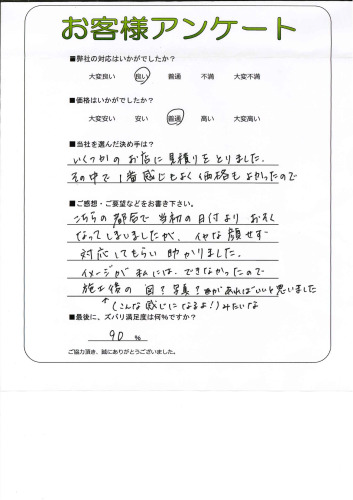 お客様アンケート
■弊社の対応はいかがでしたか？
大変良い 良い 普通 不満 大変不満
■価格はいかがでしたか？
大変安い 安い 普通 高い 大変高い
■当社を選んだ決め手は？
いくつかのお店に見積りをとりました.
その中で1番感じもよく価格もよかったので
■ご感想・ご要望などをお書き下さい。
こちらの都合で当初の日付よりおそく
なってしまいましたが、イヤな顔せず
対応してもらい助かりました.
イメージが私には、できなかったので
施工後の図？写真？があればいいと思いました
↑(こんな感じになるよ!)みたいな
■最後に、ズバリ満足度は何％ですか？
90 %
ご協力頂き、誠にありがとうございました。